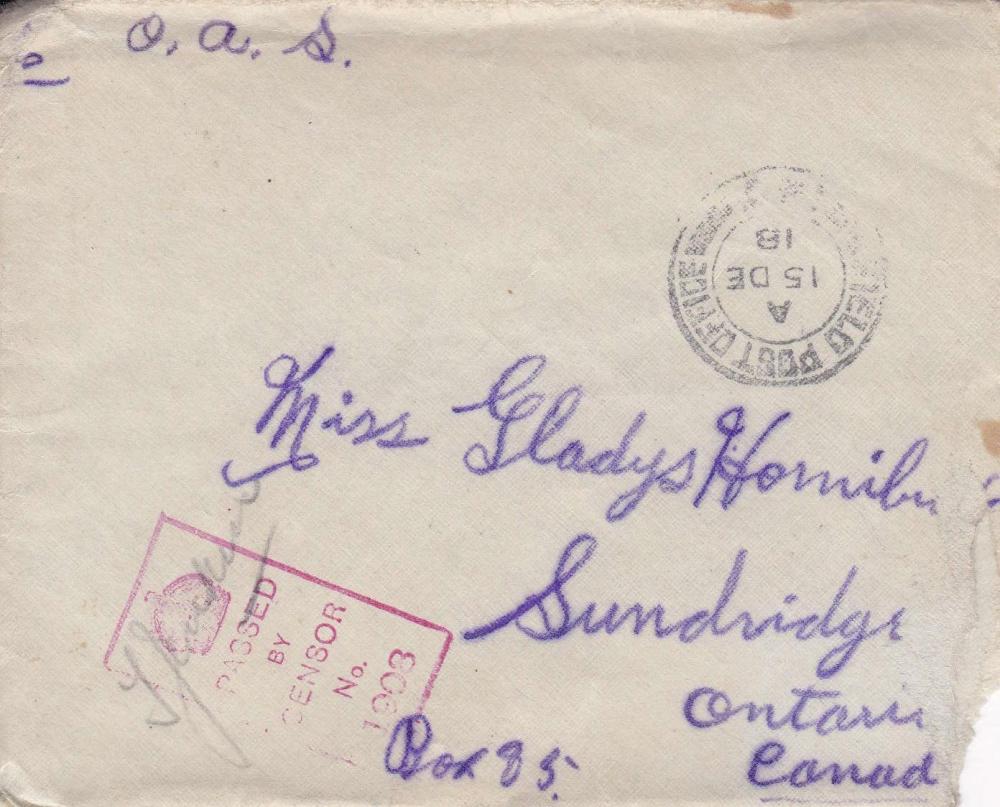 O. A. S.
FIELD POST OFFICE
A
15 DE
18
Miss Gladys Hornibr
Sundridge
Ontari
Canad
Box 85.
PASSED
BY
CENSOR
No.
1903